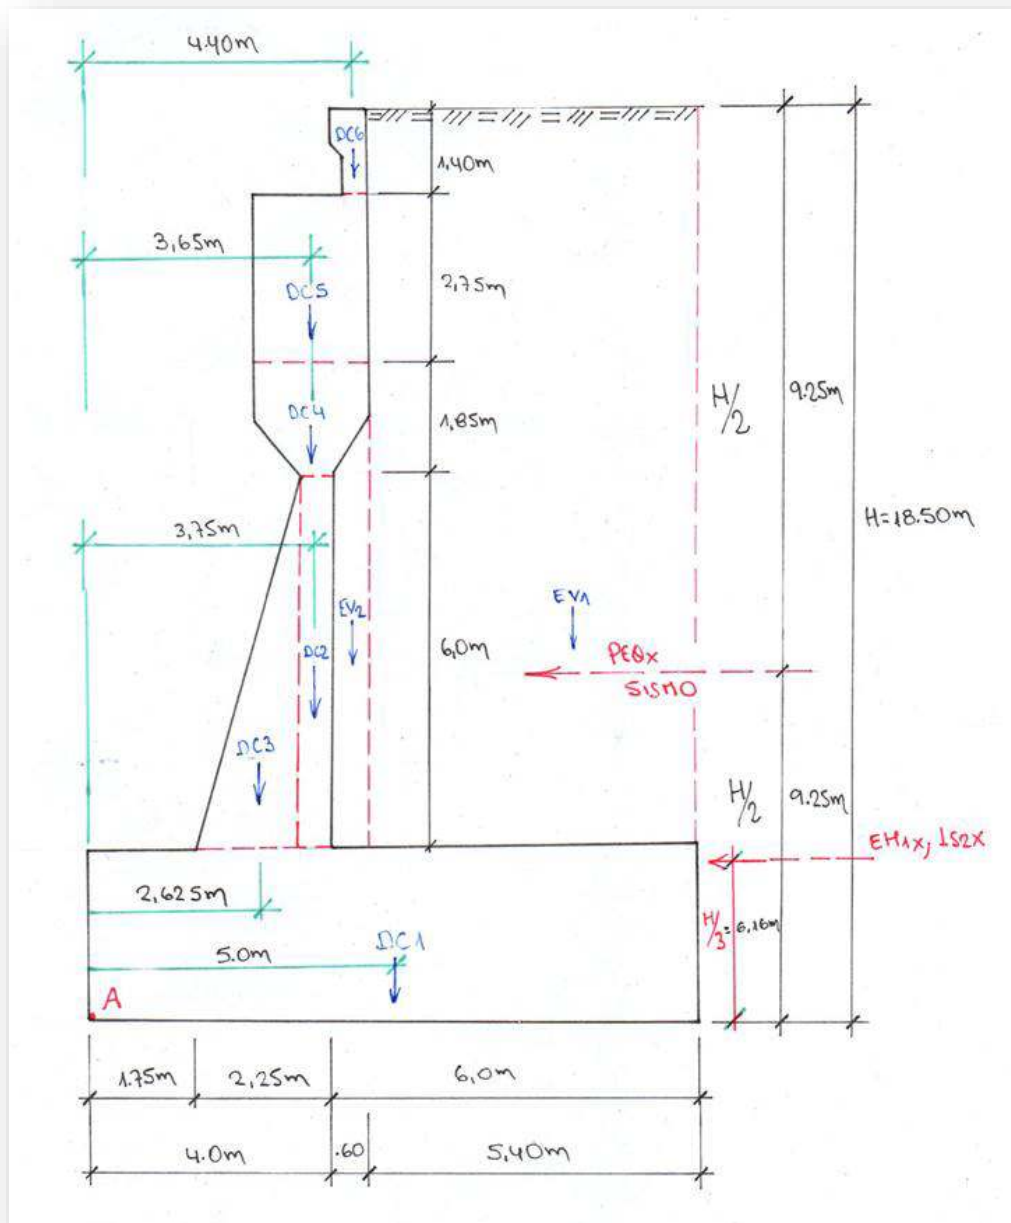 4.40m
DC6
1,40m
3,65m
DC5
2,75m
DC4
1,85m
H/2
9.25m
H=18.50m
3,75m
EV2
EV1
DC2
6,0m
PEQx
SISMO
DC3
H/2
9.25m
EH1x, LS2x
2,625m
H/3=6,16m
5.0m
DC1
A
1.75m
2,25m
6,0m
4.0m
.60
5,40m